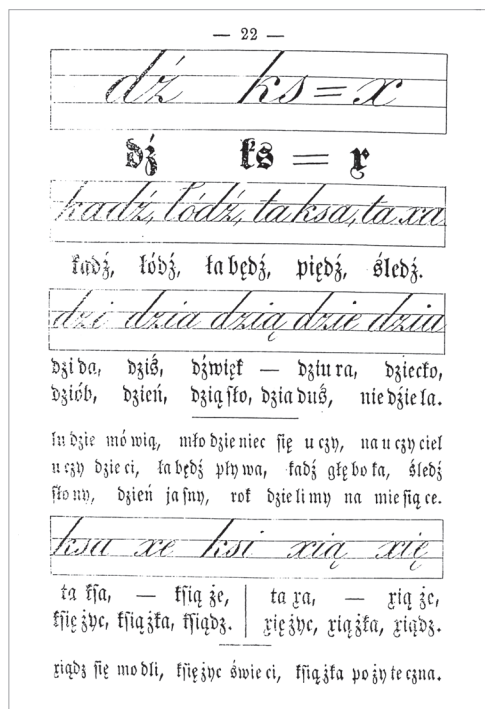 — 22 —
dź ks = x
dź ks = x
kadź, łódź, taksa, ta xa.
kadź, łódź, ła będź, piędź, śledź.
dzi dzia dzią dzie dzia
dzi da, dziś, dźwięk — dziu ra, dziecko,
dziób, dzień, dzią sło, dzia duś, nie dzie la.
lu dzie mó wią, mło dzie niec się u czy, na u czy ciel
u czy dzie ci, ła będź pły wa, kadź głę bo ka, śledź
sło ny, dzień ja sny, rok dzie li my na mie sią ce.
ksa xe ksi xią xię
ta ksa, — ksią że, ta xa, — xią że,
księ życ, ksią żka, ksiądz. xię życ, xią żka, xiądz.
xiądz się mo dli, księ życ świe ci, ksią żka po ży te czna.